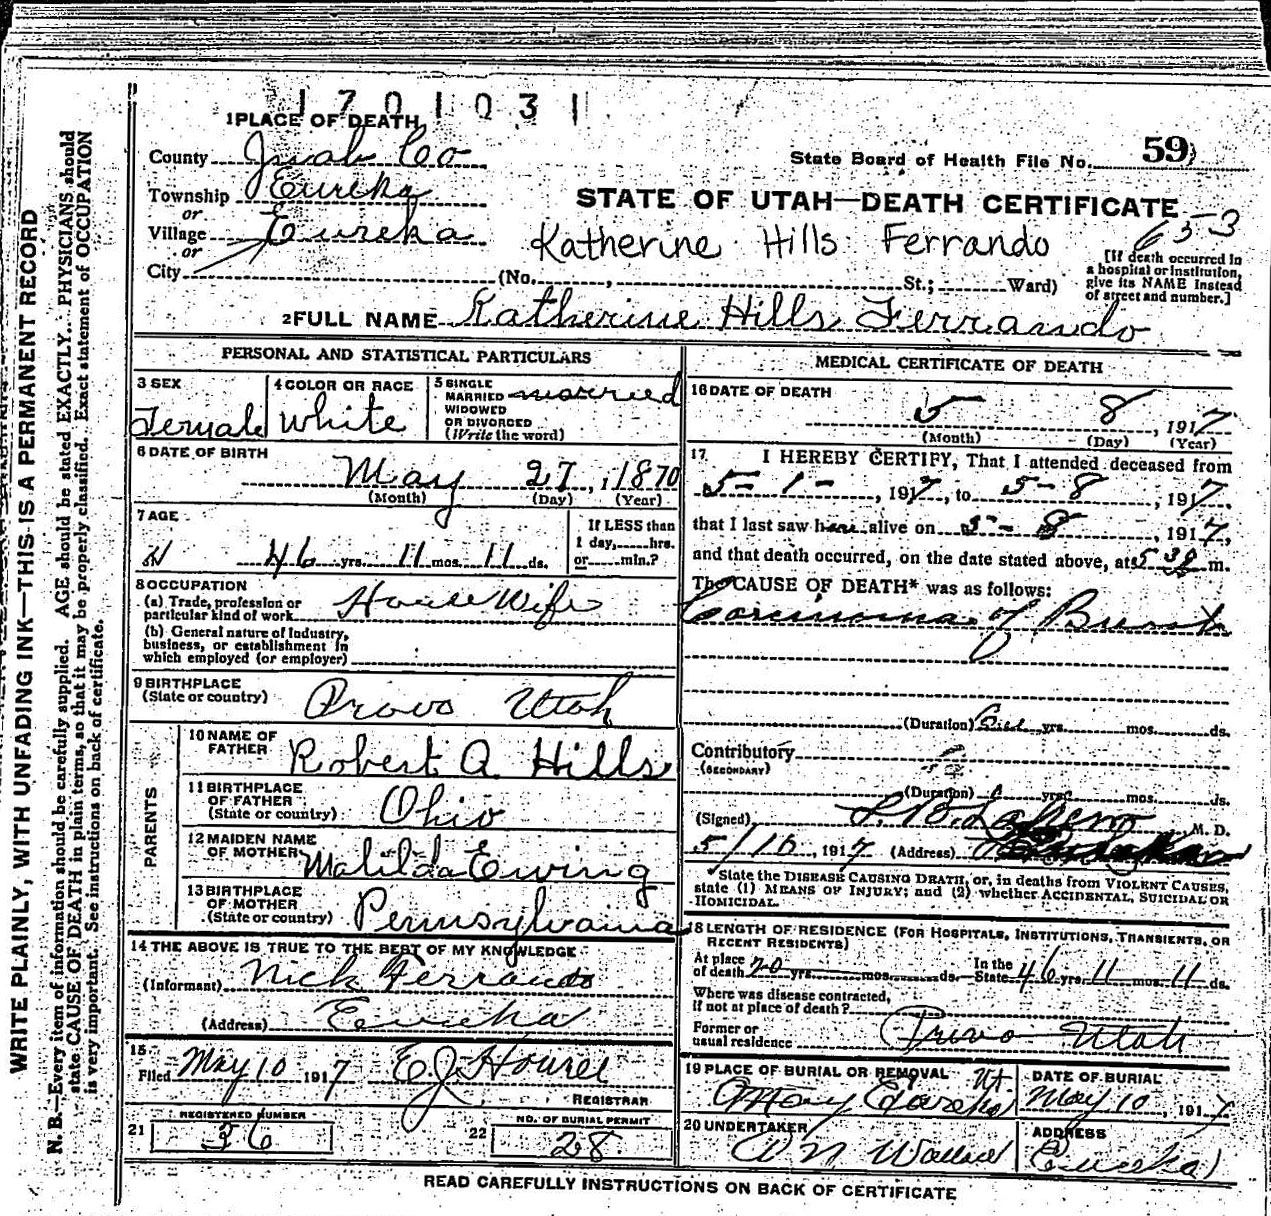 1701031
1 PLACE OF DEATH
County Juab Co
State Board of Health File No. 59
Township Eureka
or
STATE OF UTAH—DEATH CERTIFICATE
Village Eureka
or
Katherine Hills Ferrando
653
City (No. , St.; Ward)
[If death occurred in
a hospital or institution,
give its NAME instead
of street and number.]
2 FULL NAME Katherine Hills Ferrando
PERSONAL AND STATISTICAL PARTICULARS
3 SEX
Female
4 COLOR OR RACE
White
5 SINGLE
MARRIED
WIDOWED
OR DIVORCED
(Write the word)
married
6 DATE OF BIRTH
May 27, 1870
(Month) (Day) (Year)
7 AGE
46 yrs. 11 mos. 11 ds.
If LESS than
1 day,......hrs.
or......min.?
8 OCCUPATION
(a) Trade, profession or
particular kind of work House Wife
(b) General nature of Industry,
business, or establishment in
which employed (or employer)
9 BIRTHPLACE
(State or country) Provo Utah
PARENTS
10 NAME OF
FATHER Robert A Hills
11 BIRTHPLACE
OF FATHER
(State or country) Ohio
12 MAIDEN NAME
OF MOTHER Matilda Ewing
13 BIRTHPLACE
OF MOTHER
(State or country) Pennsylvania
14 THE ABOVE IS TRUE TO THE BEST OF MY KNOWLEDGE
(Informant) Nick Ferrando
(Address) Eureka
15
Filed May 10 1917 E.J. Howell
REGISTRAR
21 REGISTERED NUMBER
36
22 NO. OF BURIAL PERMIT
28
MEDICAL CERTIFICATE OF DEATH
16 DATE OF DEATH
5 8, 1917
(Month) (Day) (Year)
17 I HEREBY CERTIFY, That I attended deceased from
5-1-, 1917, to 5-8, 1917,
that I last saw her alive on 5-8, 1917,
and that death occurred, on the date stated above, at 5 30 m.
The CAUSE OF DEATH* was as follows:
Carcinoma of Breast
(Duration) yrs. mos. ds.
Contributory
(SECONDARY)
(Duration) yrs. mos. ds.
(Signed) M. D.
5/16, 1917 (Address)
*State the DISEASE CAUSING DEATH, or, in deaths from VIOLENT CAUSES,
state (1) MEANS OF INJURY; and (2) whether ACCIDENTAL, SUICIDAL OR
HOMICIDAL.
18 LENGTH OF RESIDENCE (FOR HOSPITALS, INSTITUTIONS, TRANSIENTS, OR
RECENT RESIDENTS)
At place
of death 20 yrs. mos. ds. In the
State 46 yrs. 11 mos. 11 ds.
Where was disease contracted,
if not at place of death?
Former or
usual residence Provo Utah
19 PLACE OF BURIAL OR REMOVAL Ut.
DATE OF BURIAL
May 10, 1917
20 UNDERTAKER
W N Wallace
ADDRESS
Eureka
READ CAREFULLY INSTRUCTIONS ON BACK OF CERTIFICATE
WRITE PLAINLY, WITH UNFADING INK—THIS IS A PERMANENT RECORD
N. B.—Every item of information should be carefully supplied. AGE should be stated EXACTLY. PHYSICIANS should
state CAUSE OF DEATH in plain terms, so that it may be properly classified. Exact statement of OCCUPATION
is very important. See instructions on back of certificate.